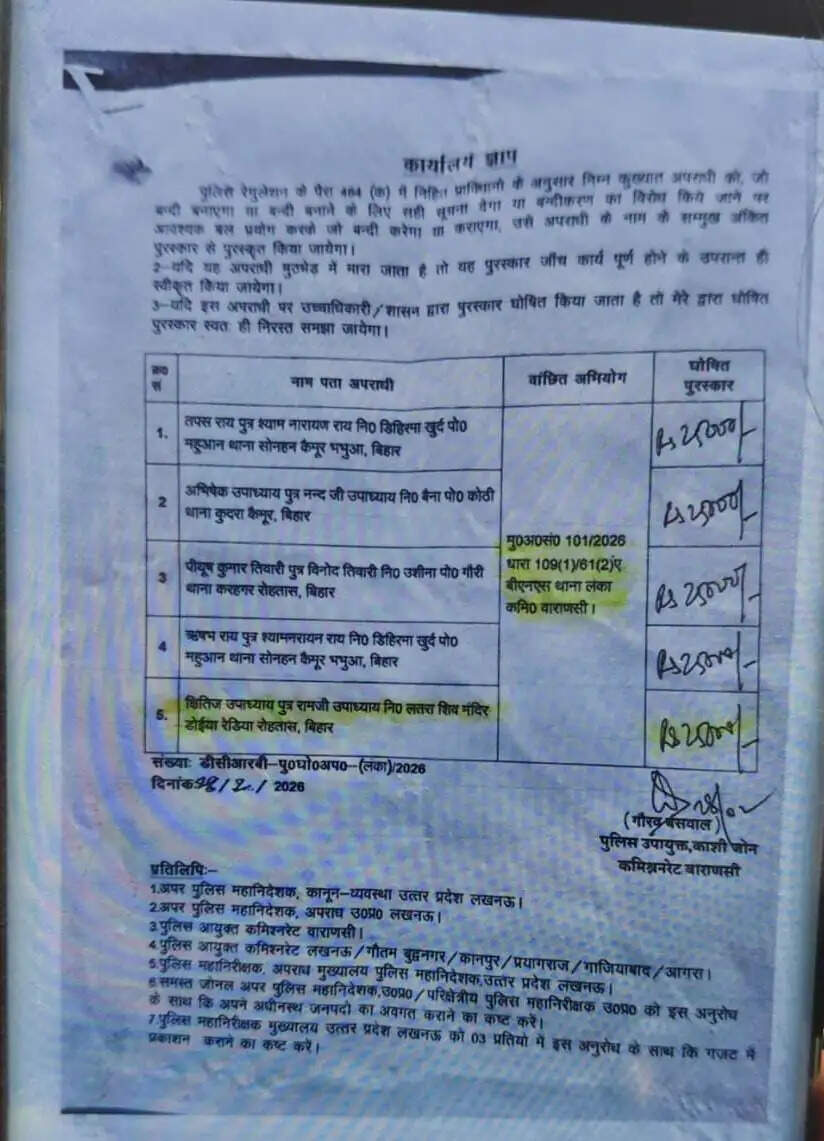 कार्यालय ज्ञाप
पुलिस रेगुलेशन के पैरा 484 (क) में निहित प्राविधानों के अनुसार निम्न कुख्यात अपराधी को, जो
बन्दी बनाएगा या बन्दी बनाने के लिए सही सूचना देगा या बन्दीकरण का विरोध किये जाने पर
आवश्यक बल प्रयोग करके जो बन्दी करेगा या कराएगा, उसे अपराधी के नाम के सम्मुख अंकित
पुरस्कार से पुरस्कृत किया जायेगा।
2-यदि यह अपराधी मुठभेड़ में मारा जाता है तो यह पुरस्कार जाँच कार्य पूर्ण होने के उपरान्त ही
स्वीकृत किया जायेगा।
3-यदि इस अपराधी पर उच्चाधिकारी/शासन द्वारा पुरस्कार घोषित किया जाता है तो मेरे द्वारा घोषित
पुरस्कार स्वत ही निरस्त समझा जायेगा।
क्र0 सं
नाम पता अपराधी
वांछित अभियोग
घोषित
पुरस्कार
1.
तपस राय पुत्र श्याम नारायण राय नि0 डिहिरमा खुर्द पो0
महुआन थाना सोनहन कैमूर भभुआ, बिहार
Rs 25000/-
2
अभिषेक उपाध्याय पुत्र नन्द जी उपाध्याय नि0 बैना पो0 कोठी
थाना कुदरा कैमूर, बिहार
Rs 25000/-
मु0अ0सं0 101/2026
धारा 109(1)/61(2)ए
बीएनएस थाना लंका
कमि0 वाराणसी।
3
पीयूष कुमार तिवारी पुत्र विनोद तिवारी नि0 उशीना पो0 गौरी
थाना करहगर रोहतास, बिहार
Rs 25000/-
4
ऋषभ राय पुत्र श्यामनरायन राय नि0 डिहिरमा खुर्द पो0
महुआन थाना सोनहन कैमूर भभुआ, बिहार
Rs 25000/-
5.
क्षितिज उपाध्याय पुत्र रामजी उपाध्याय नि0 लतरा शिव मंदिर
डोईया रेडिया रोहतास, बिहार
Rs 25000/-
संख्याः डीसीआरबी-पु0घो0अप0-(लंका)/2026
दिनांक 28/2/2026
(गौरव बंसवाल)
पुलिस उपायुक्त,काशी जोन
कमिश्नरेट वाराणसी
प्रतिलिपिः-
1.अपर पुलिस महानिदेशक, कानून-व्यवस्था उत्तर प्रदेश लखनऊ।
2.अपर पुलिस महानिदेशक, अपराध उ0प्र0 लखनऊ।
3.पुलिस आयुक्त कमिश्नरेट वाराणसी।
4.पुलिस आयुक्त कमिश्नरेट लखनऊ/गौतम बुद्वनगर/कानपुर/प्रयागराज/गाजियाबाद/आगरा।
5.पुलिस महानिरीक्षक, अपराध मुख्यालय पुलिस महानिदेशक,उत्तर प्रदेश लखनऊ।
6.समस्त जोनल अपर पुलिस महानिदेशक,उ0प्र0/परिक्षेत्रीय पुलिस महानिरीक्षक उ0प्र0 को इस अनुरोध
के साथ कि अपने अधीनस्थ जनपदो का अवगत कराने का कष्ट करें।
7.पुलिस महानिरीक्षक मुख्यालय उत्तर प्रदेश लखनऊ को 03 प्रतियो में इस अनुरोध के साथ कि गजट में
प्रकाशन कराने का कष्ट करें।